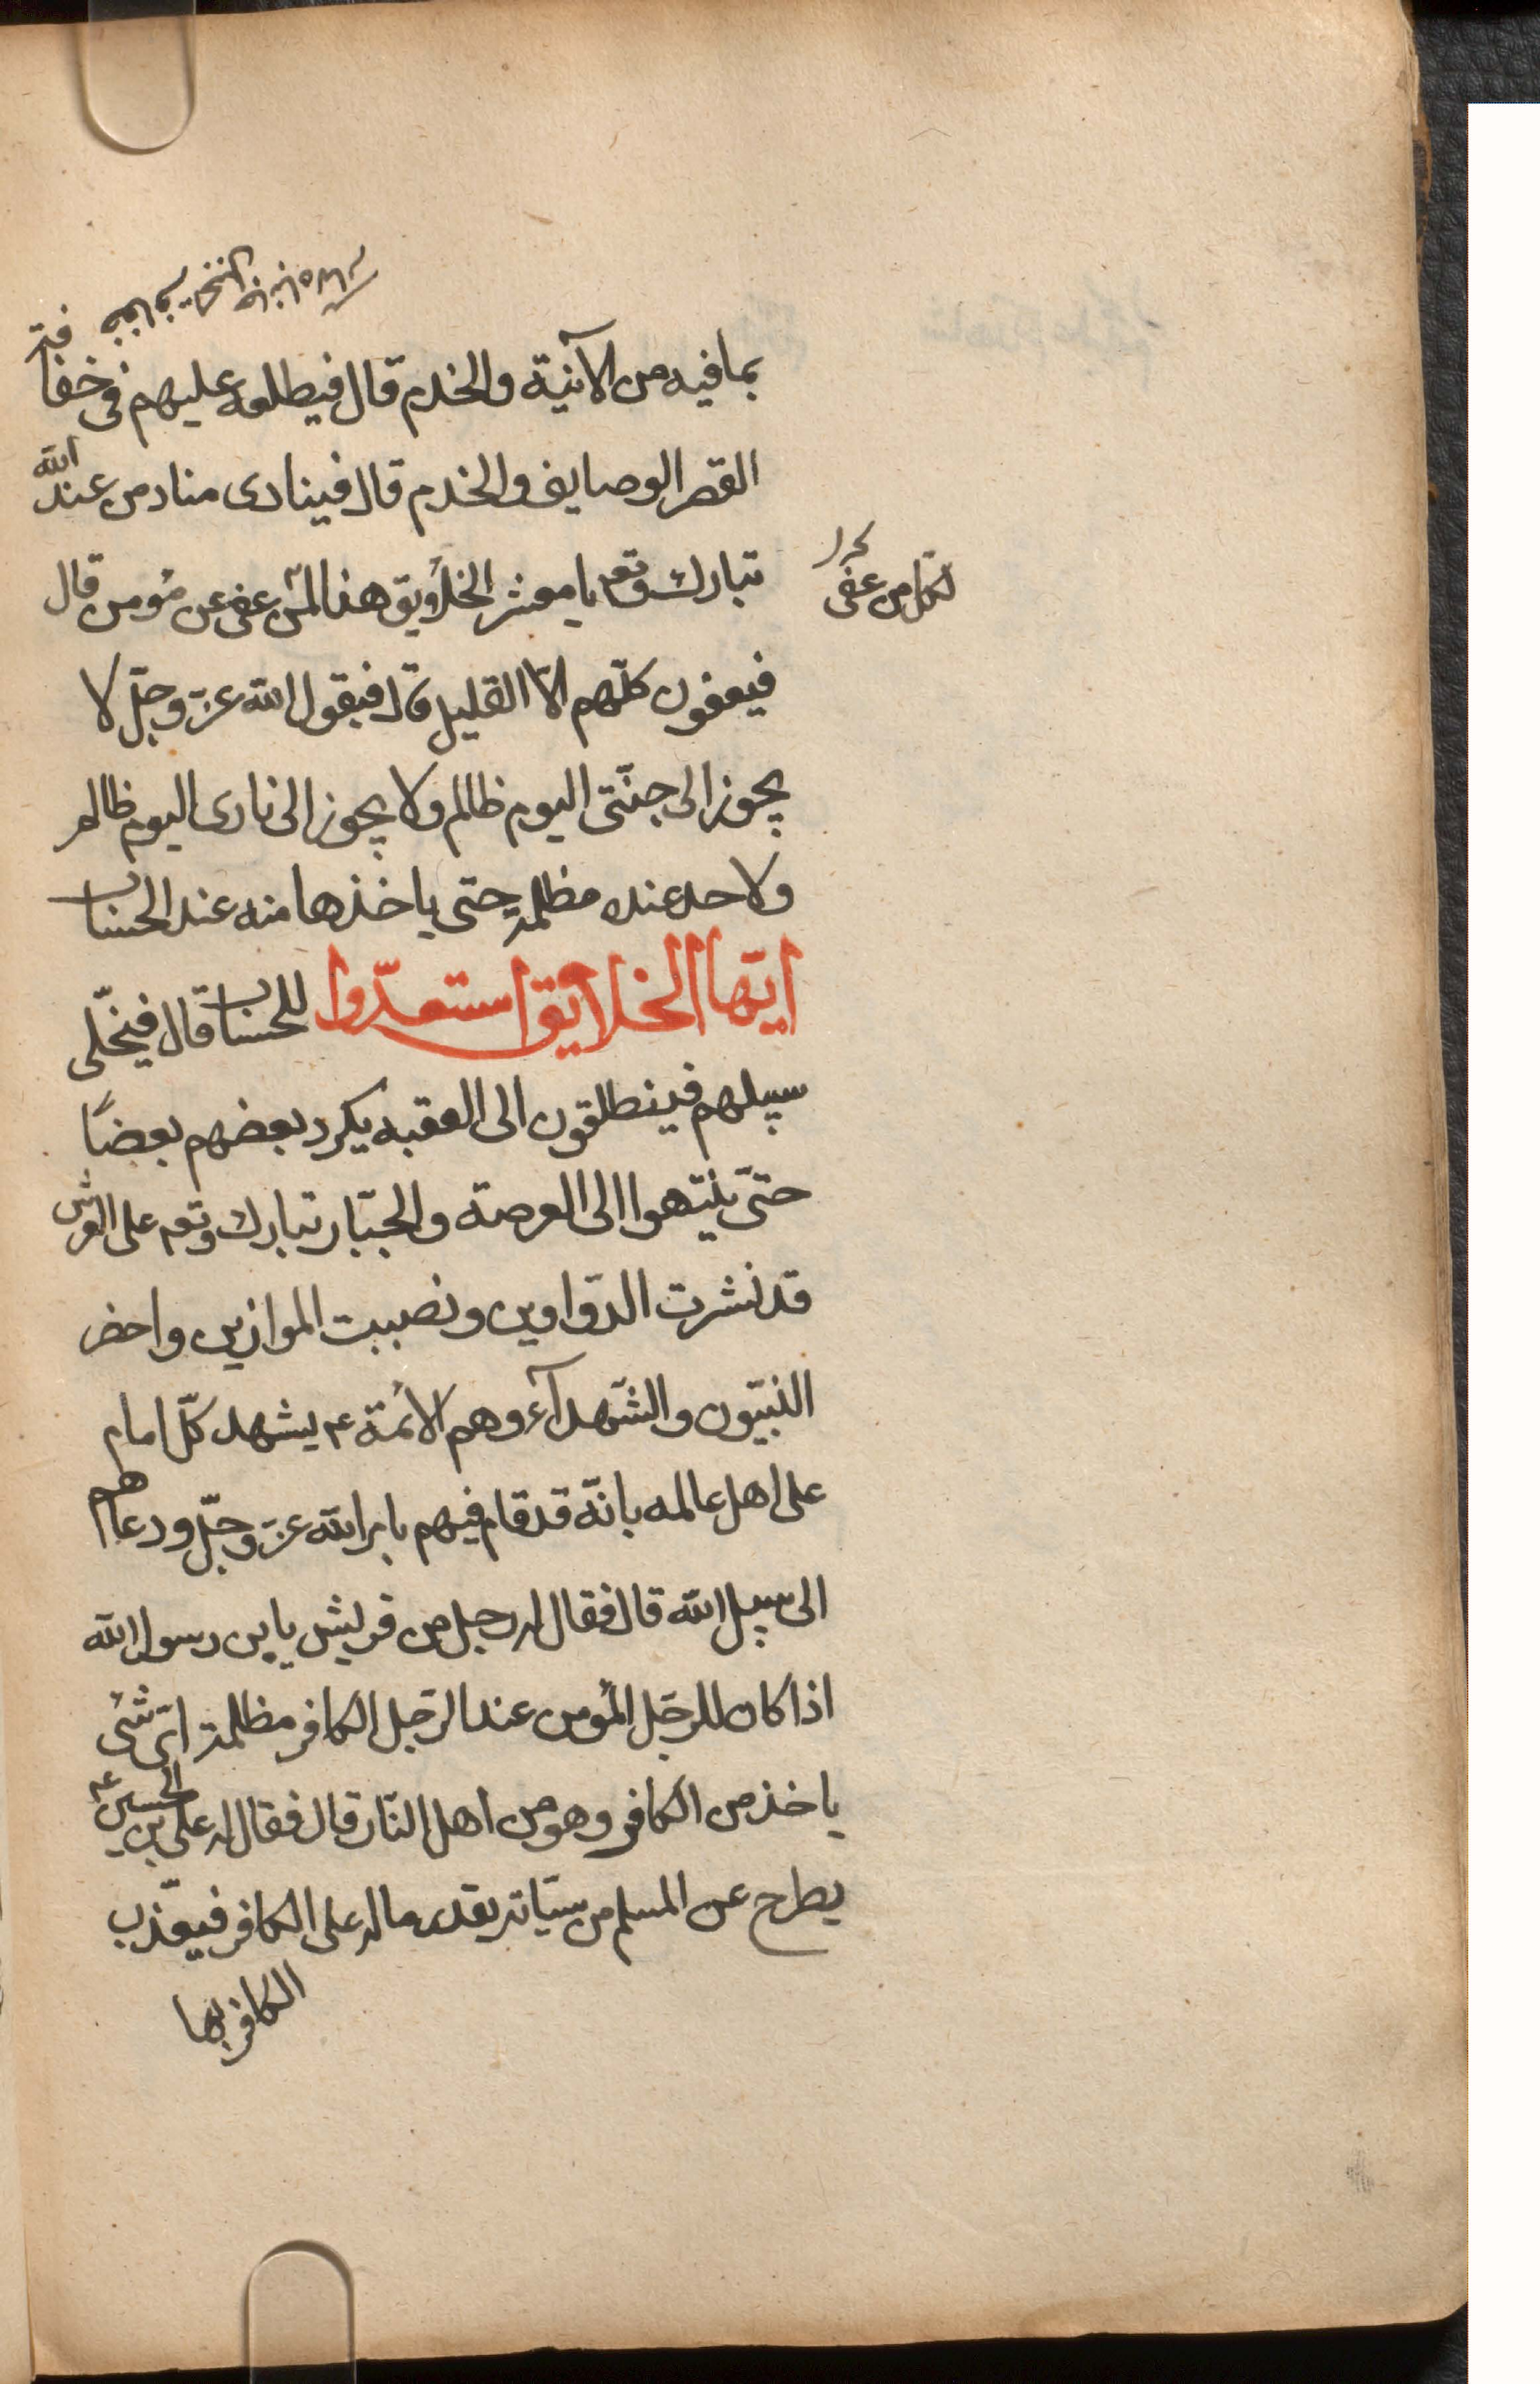 بما فيه من الآنية والخدم قال فيطلعه عليهم فى خفافة
القصر الوصايف والخدم قال فينادى مناد من عند الله
تبارك وتعم يا معشر الخلآويق هذا لمن عفى عن مؤمن قال
لكل من عفى
فيعفون كلّهم الّا القليل قال فيقول الله عزّ وجلّ لا
يجوز الى جنّتى اليوم ظالم ولا يجوز الى نارى اليوم ظالم
ولاحد عنده مظلمة حتى ياخذها منه عند الحساب
ايّها الخلايق استعدّوا للحساب قال فيخلّى
سبيلهم فينطلقون الى العقبه يكرد بعضهم بعضًا
حتىّ ينتهوا الى العرصة والجبّار تبارك وتعم على العرش
قد نشرت الدّواوين ونصبت الموازين واحضر
النبيّون والشّهدآء وهم الأئمة ع يشهد كلّ امام
على اهل عالمه بانّه قد قام فيهم بامر الله عزّ وجلّ ودعاهم
الى سبيل الله قال فقال له رجل من قريش يابن رسول الله
اذا كان للرجل المؤمن عند الرّجل الكافر مظلمة اىّ شئ
ياخذ من الكافر وهو من اهل النّار قال فقال له على بن الحسين ع
يطرح عن المسلم من سيّاته بقدر ماله على الكافر فيعذّب
الكافر بها